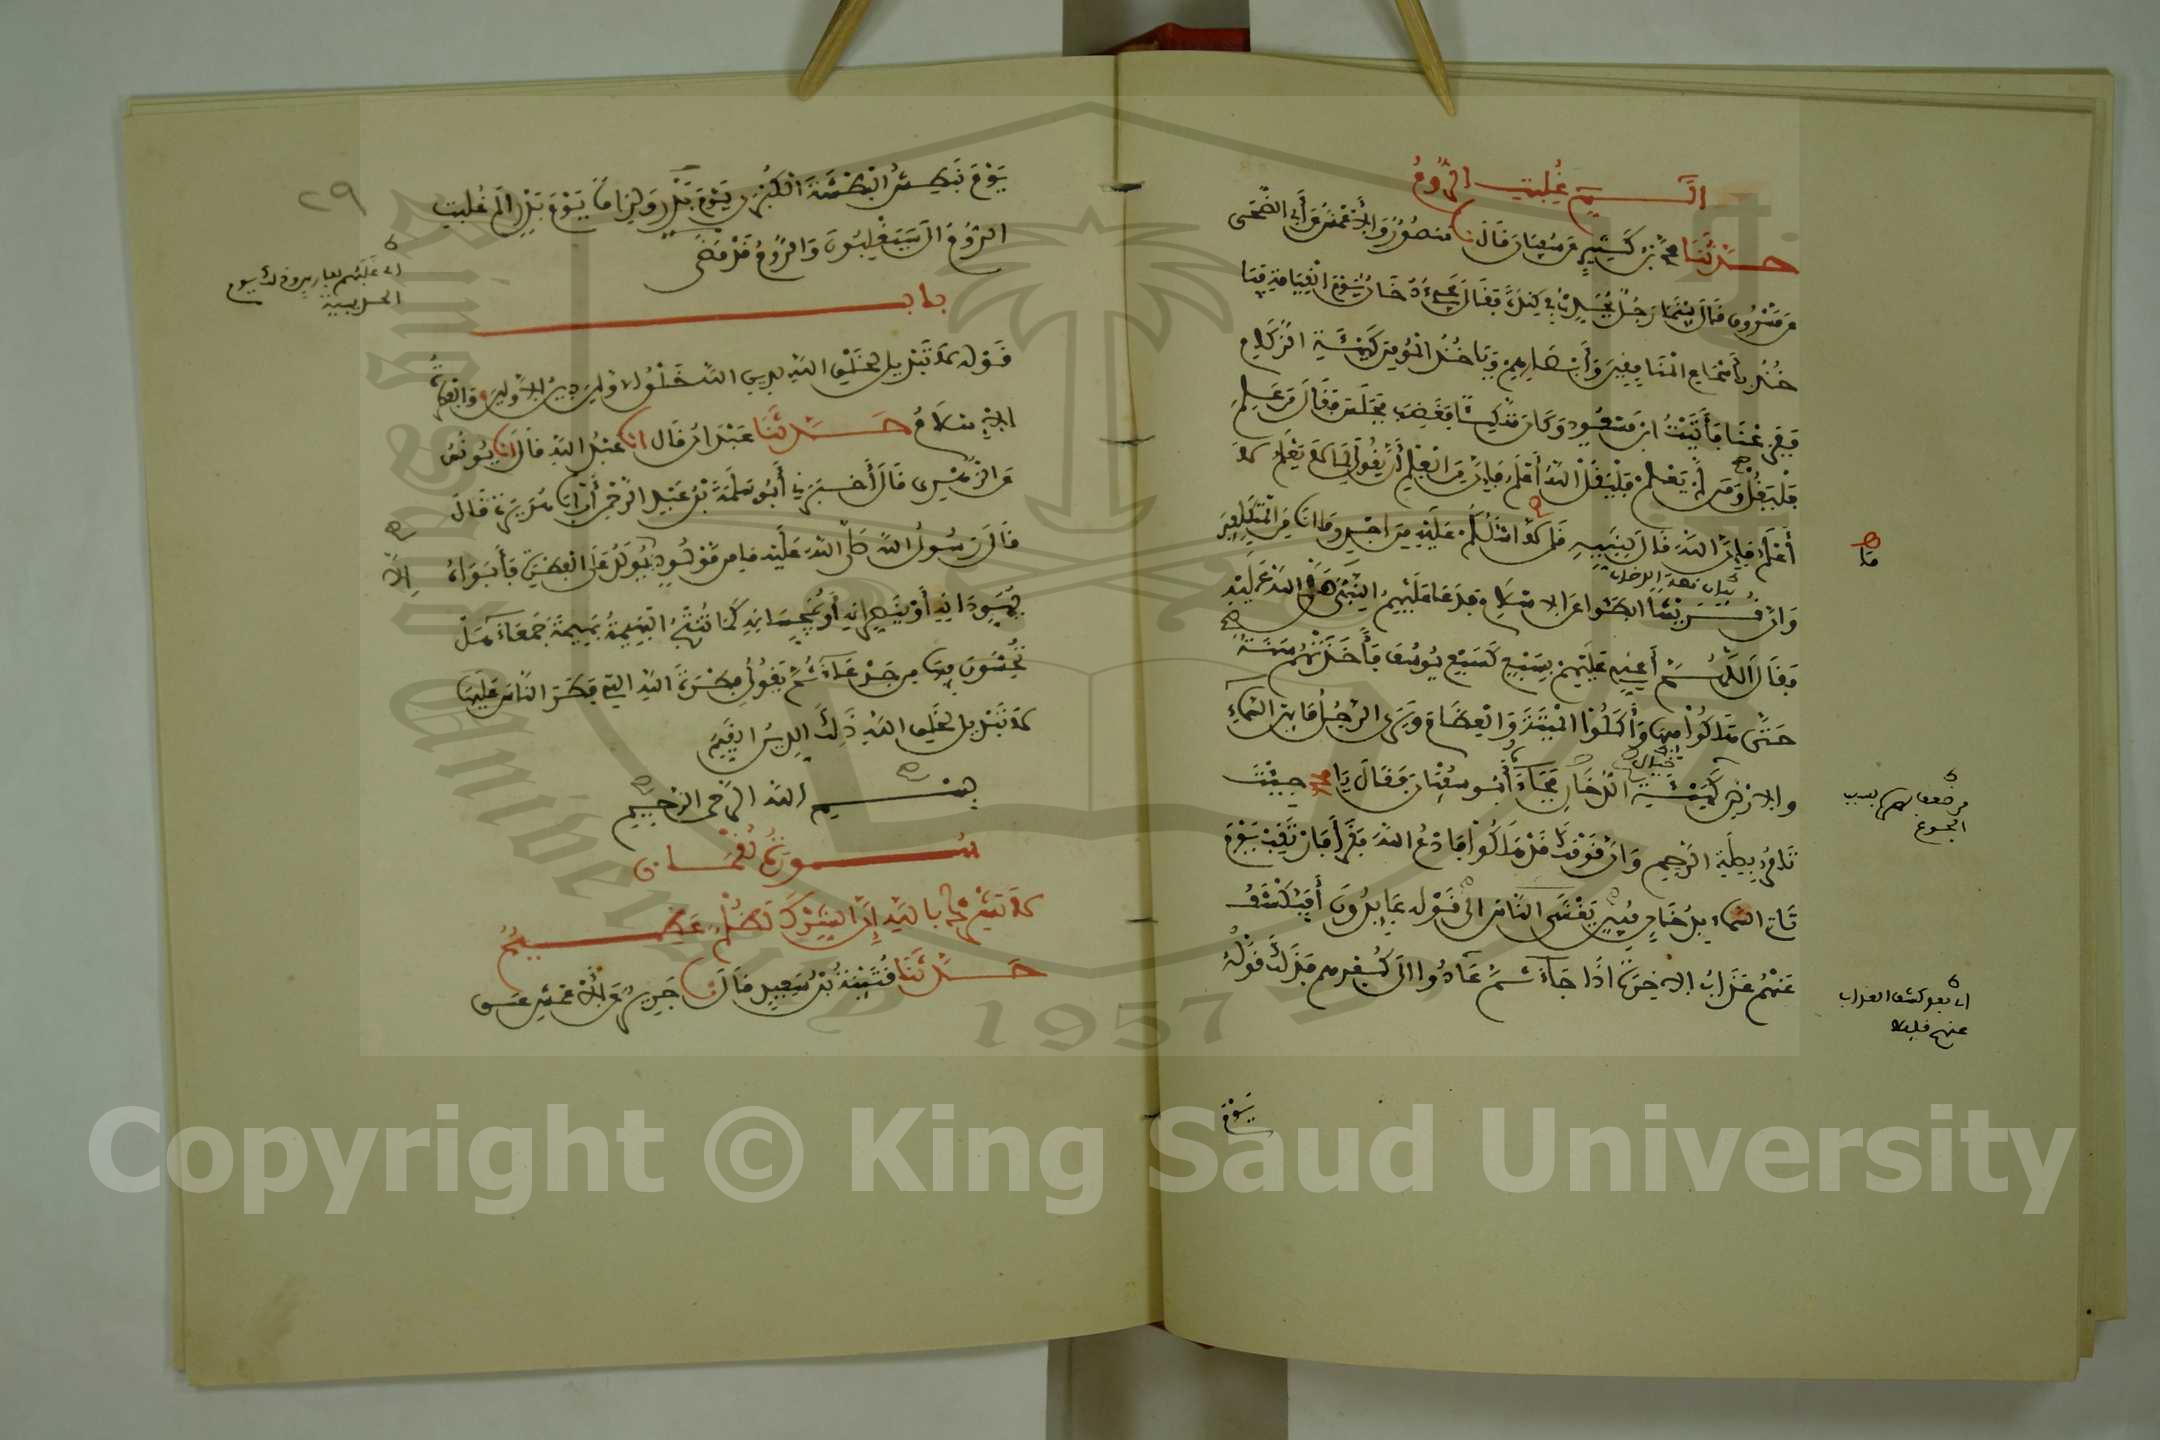 الم غلبت الروم
حدثنا محمد بن كثير عن سفيان قال نا منصور والاعمش عن أبي الضحى
عن مسروق قال بينما رجل يحدث في كندة فقال يجيء دخان يوم القيامة فيا
خذ بأسماع المنافقين وأبصارهم وياخذ المومن كهيئة الزكام
ففزعنا فأتيت ابن مسعود وكان متكيا فغضب فجلس فقال من علم
فليقل ومن لم يعلم فليقل الله أعلم فإن من العلم أن يقول لما لا يعلم لا
أعلم فإن الله قال لنبيه قل لا اسئلكم عليه من اجر وما انا من المتكلفين
بيان قصة الدخان
وان قريشا ابطئوا عن الاسلام فدعا عليهم النبي صلى الله عليه
فقال اللهم أعني عليهم بسبع كسبع يوسف فأخذتهم سنة
حتى هلكوا فيها وأكلوا الميتة والعظام ويرى الرجل ما بين السماء
والارض كهيئة الدخان فجاءه أبو سفيان فقال يا محمد جيت
تامر بصلة الرحم وان قومك قد هلكوا فادع الله فقرأ فارتقب يوم
تات السماء بدخان مبين يغشى الناس الى قوله عايدون أفيكشف
عنهم عذاب الاخرة اذا جاء ثم عادوا الى كفرهم فذلك قوله
يوم
ما
من ضعف بصره بسبب
الجوع
اي بعد كشف العذاب
عنهم قليلا
٢٩
يوم نبطش البطشة الكبرى يوم بدر ولزاما يوم بدر الم غلبت
الروم الى سيغلبون والروم قد مضى
باب
قوله لا تبديل لخلق الله لدين الله خلق الاولين دين الاولين والفطرة
الاسلام حدثنا عبدان قال انا عبد الله قال أنا يونس
عن الزهري قال أخبرني أبو سلمة بن عبد الرحمن أن أبا هريرة قال
قال رسول الله صلى الله عليه ما من مولود يولد على الفطرة فأبواه
إلا
يهودانه أو ينصرانه أو يمجسانه كما تنتج البهيمة بهيمة جمعاء هل
تحسون فيها من جدعاء ثم يقول فطرة الله التي فطر الناس عليها
لا تبديل لخلق الله ذلك الدين القيم
بسم الله الرحمن الرحيم
سورة لقمان
لا تشرك بالله إن الشرك لظلم عظيم
حدثنا قتيبة بن سعيد قال نا جرير عن الاعمش عن
الحديبية
Copyright © King Saud University
1957